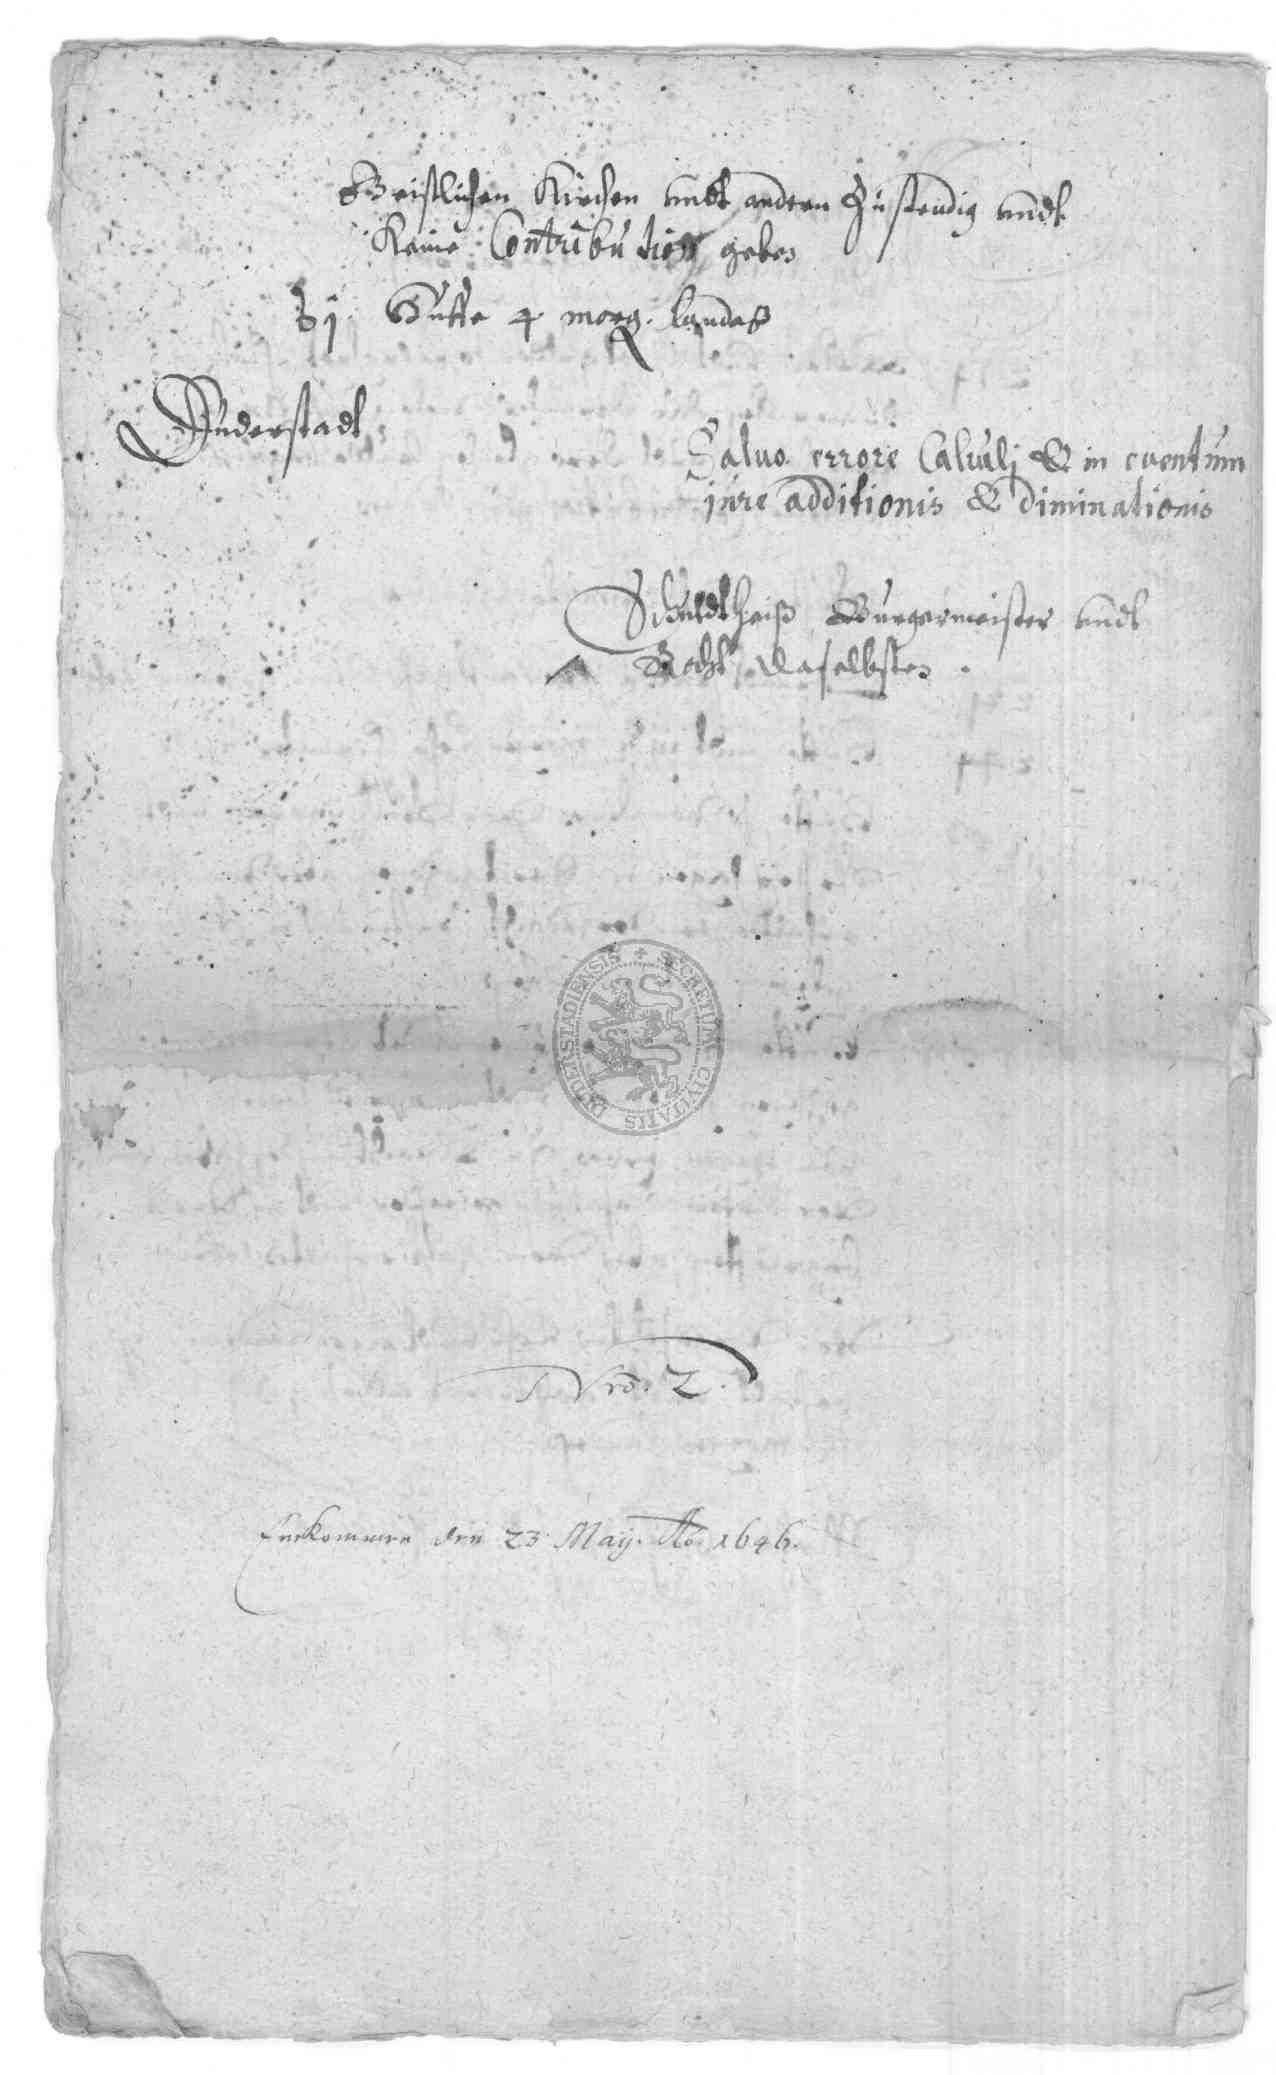 Geistlichen Kirchen undt andern Zustendig undt
Keine Contribution geben
Huffe 4 morg. Landeß
Duderstadt
Salvo errore Calculj & in eventum
jure additionis & diminutionis
Schuldtheiß Burgermeister undt
Raht daselbsten.
SECRETUM CIVITATIS DUDERSTADIENSIS
Nro. 2.
Einkommen den 23 Maij. Ao. 1646.